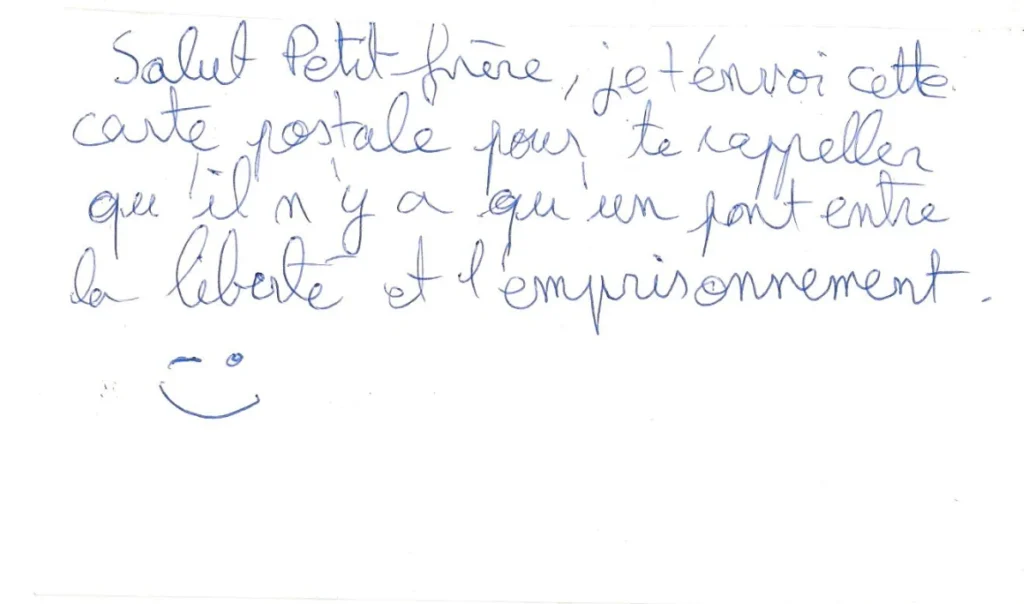 Salut Petit frère, je t'envoi cette
carte postale pour te rappeller
qu'il n'y a qu'un pont entre
la liberté et l'emprisonnement.